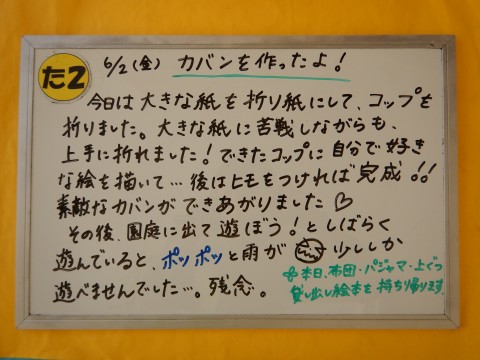 た2
6/2(金) カバンを作ったよ!
今日は大きな紙を折り紙にして、コップを
折りました。大きな紙に苦戦しながらも、
上手に折れました!できたコップに自分で好き
な絵を描いて…後はヒモをつければ完成!!
素敵なカバンができあがりました♡
その後、園庭に出て遊ぼう!としばらく
遊んでいると、ポツポツと雨が 少ししか
遊べませんでした…。残念。
本日、布団・パジャマ・上ぐつ
貸し出し絵本を持ち帰ります。